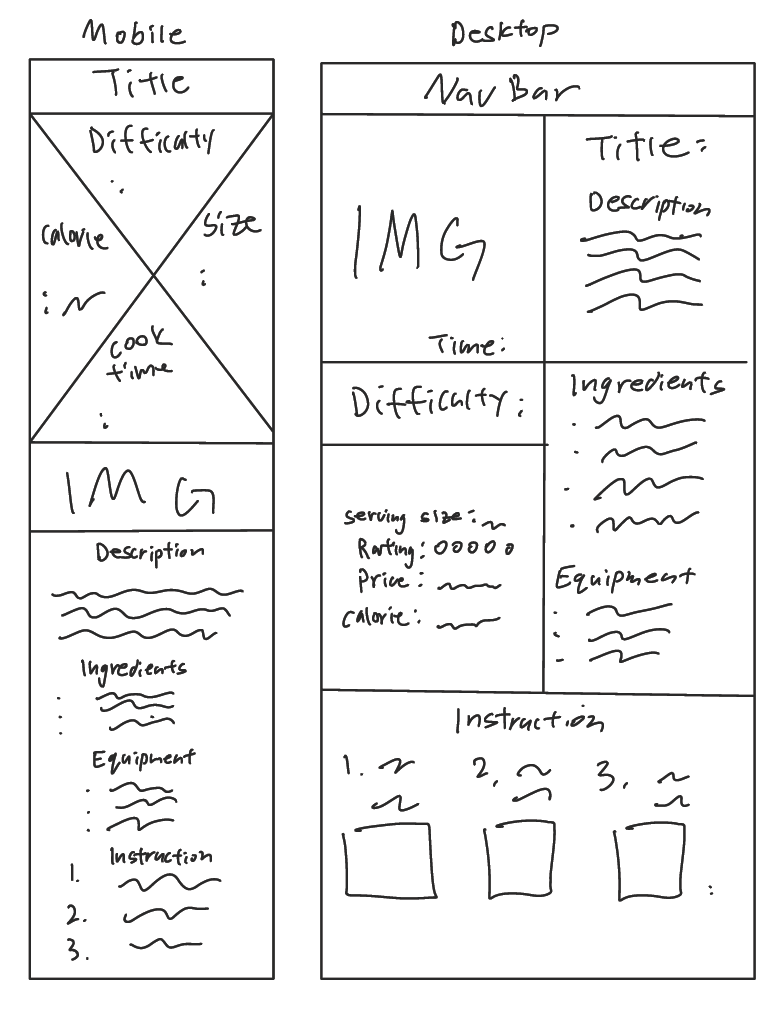 Mobile
Title
Difficalty
:
Calorie
:
Size
:
Cook
time
:
IMG
Description
Ingredients
Equipment
Instruction
1.
2.
3.
Desktop
Nav Bar
IMG
Time:
Title:
Description
Difficalty:
Serving size:
Rating: 00000
Price:
Calorie:
Ingredients
Equipment
Instruction
1.
2.
3.